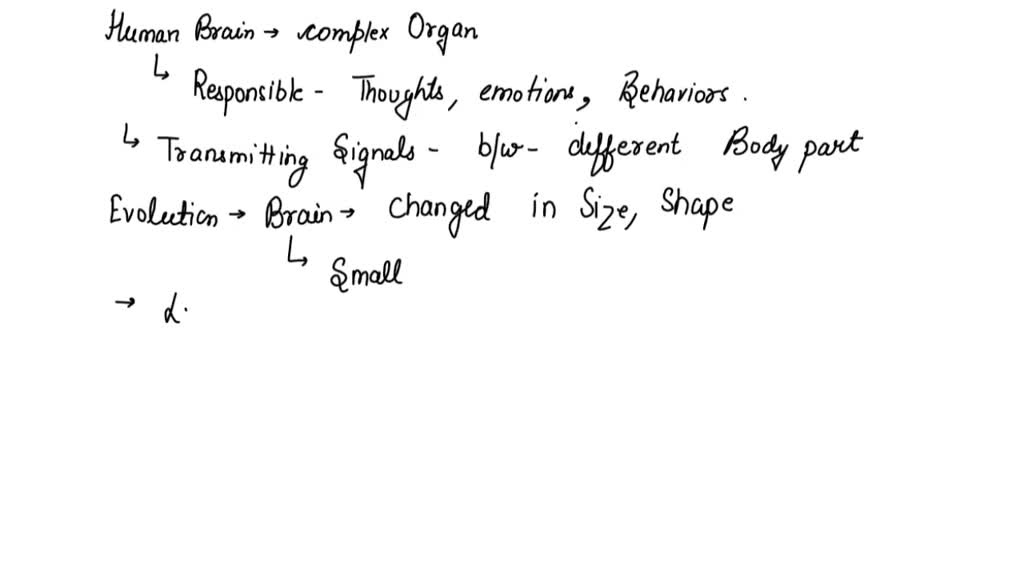 Human Brain → complex Organ
↳ Responsible - Thoughts, emotions, Behaviors.
↳ Transmitting Signals - b/w - different Body part
Evolution → Brain → changed in Size, Shape
↳ Small
→